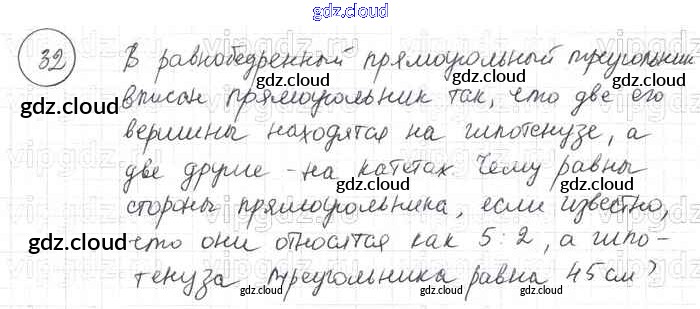 gdz.cloud
32 В равнобедренный прямоугольный треугольник
gdz.cloud gdz.cloud
вписан прямоугольник так, что две его
gdz.cloud
вершины находятся на гипотенузе, а
две другие - на катетах. Чему равны
gdz.cloud gdz.cloud
стороны прямоугольника, если известно,
gdz.cloud
что они относятся как 5:2, а гипо-
gdz.cloud gdz.cloud
тенуза треугольника равна 45 см?
gdz.cloud gdz.cloud